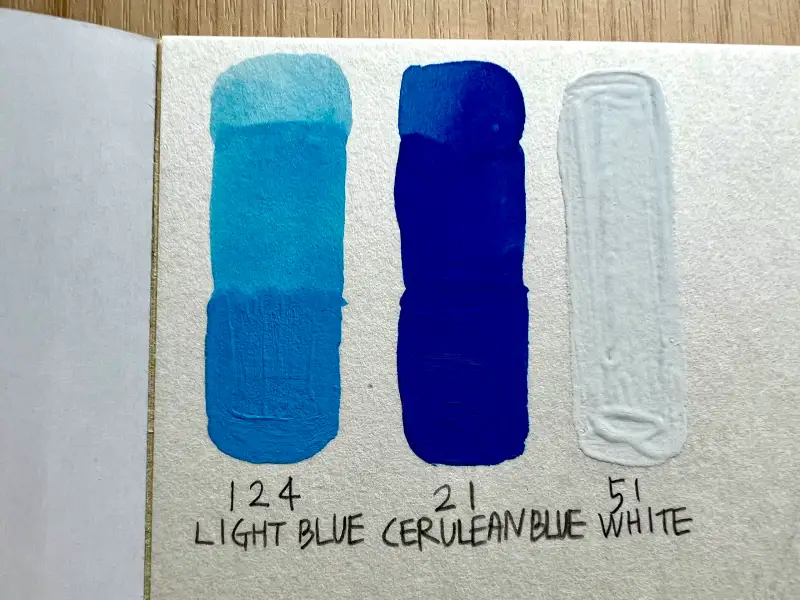 124 21 51
LIGHT BLUE CERULEAN BLUE WHITE